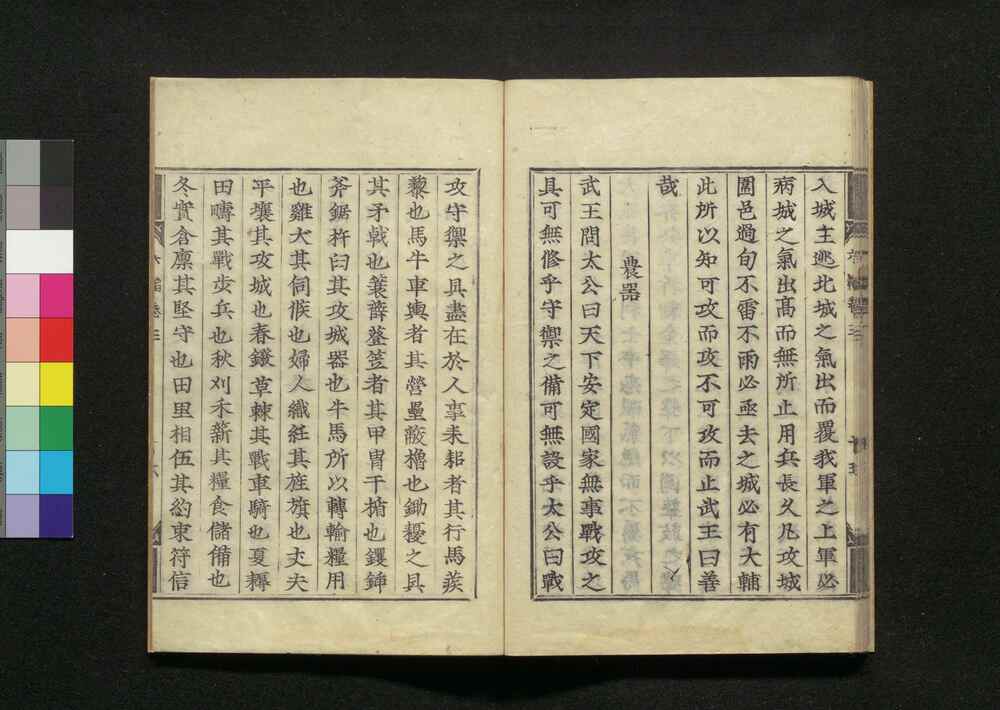 入城主逃北城之氣出而覆我軍之上軍必
病城之氣出髙而無所止用兵長久凡攻城
圍邑過旬不雷不雨必亟去之城必有大輔
此所以知可攻而攻不可攻而止武王曰善
哉
農器
武王問太公曰天下安定國家無事戰攻之
具可無修乎守禦之備可無設乎太公曰戰
攻守禦之具盡在於人事耒耜者其行馬蒺
藜也馬牛車輿者其營壘蔽櫓也鋤耰之具
其矛戟也蓑薛簦笠者其甲冑干楯也钁鍤
斧鋸杵臼其攻城器也牛馬所以轉輸糧用
也雞犬其伺候也婦人織紝其旌旗也丈夫
平壤其攻城也春鏺草棘其戰車騎也夏耨
田疇其戰步兵也秋刈禾薪其糧食儲備也
冬實倉廩其堅守也田里相伍其約束符信